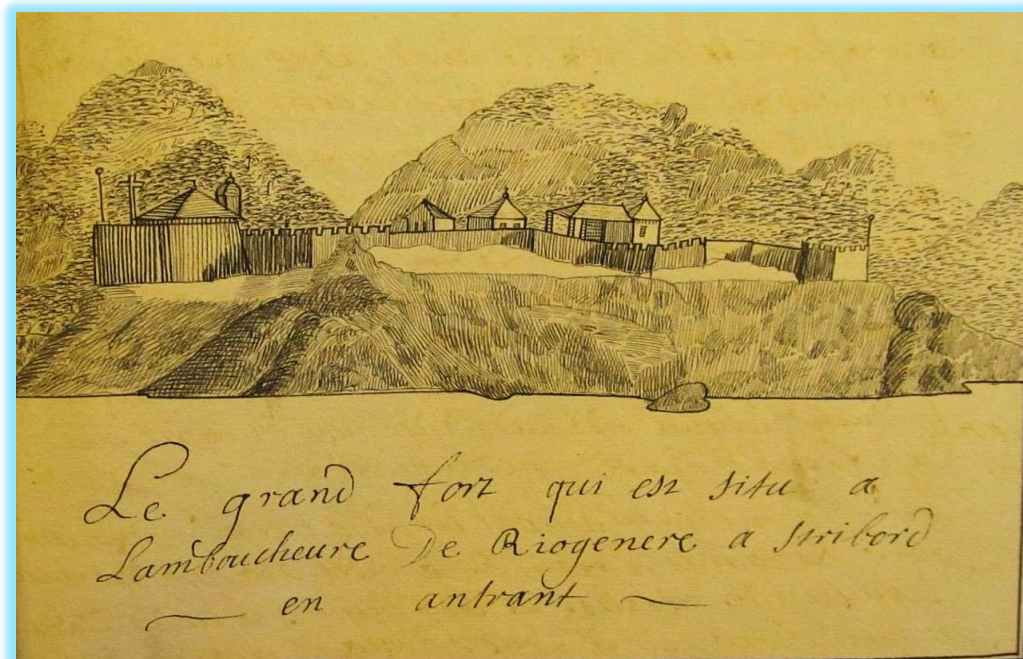 Le grand fort qui est situ a
Lamboucheure De Riogenere a stribord
en antrant